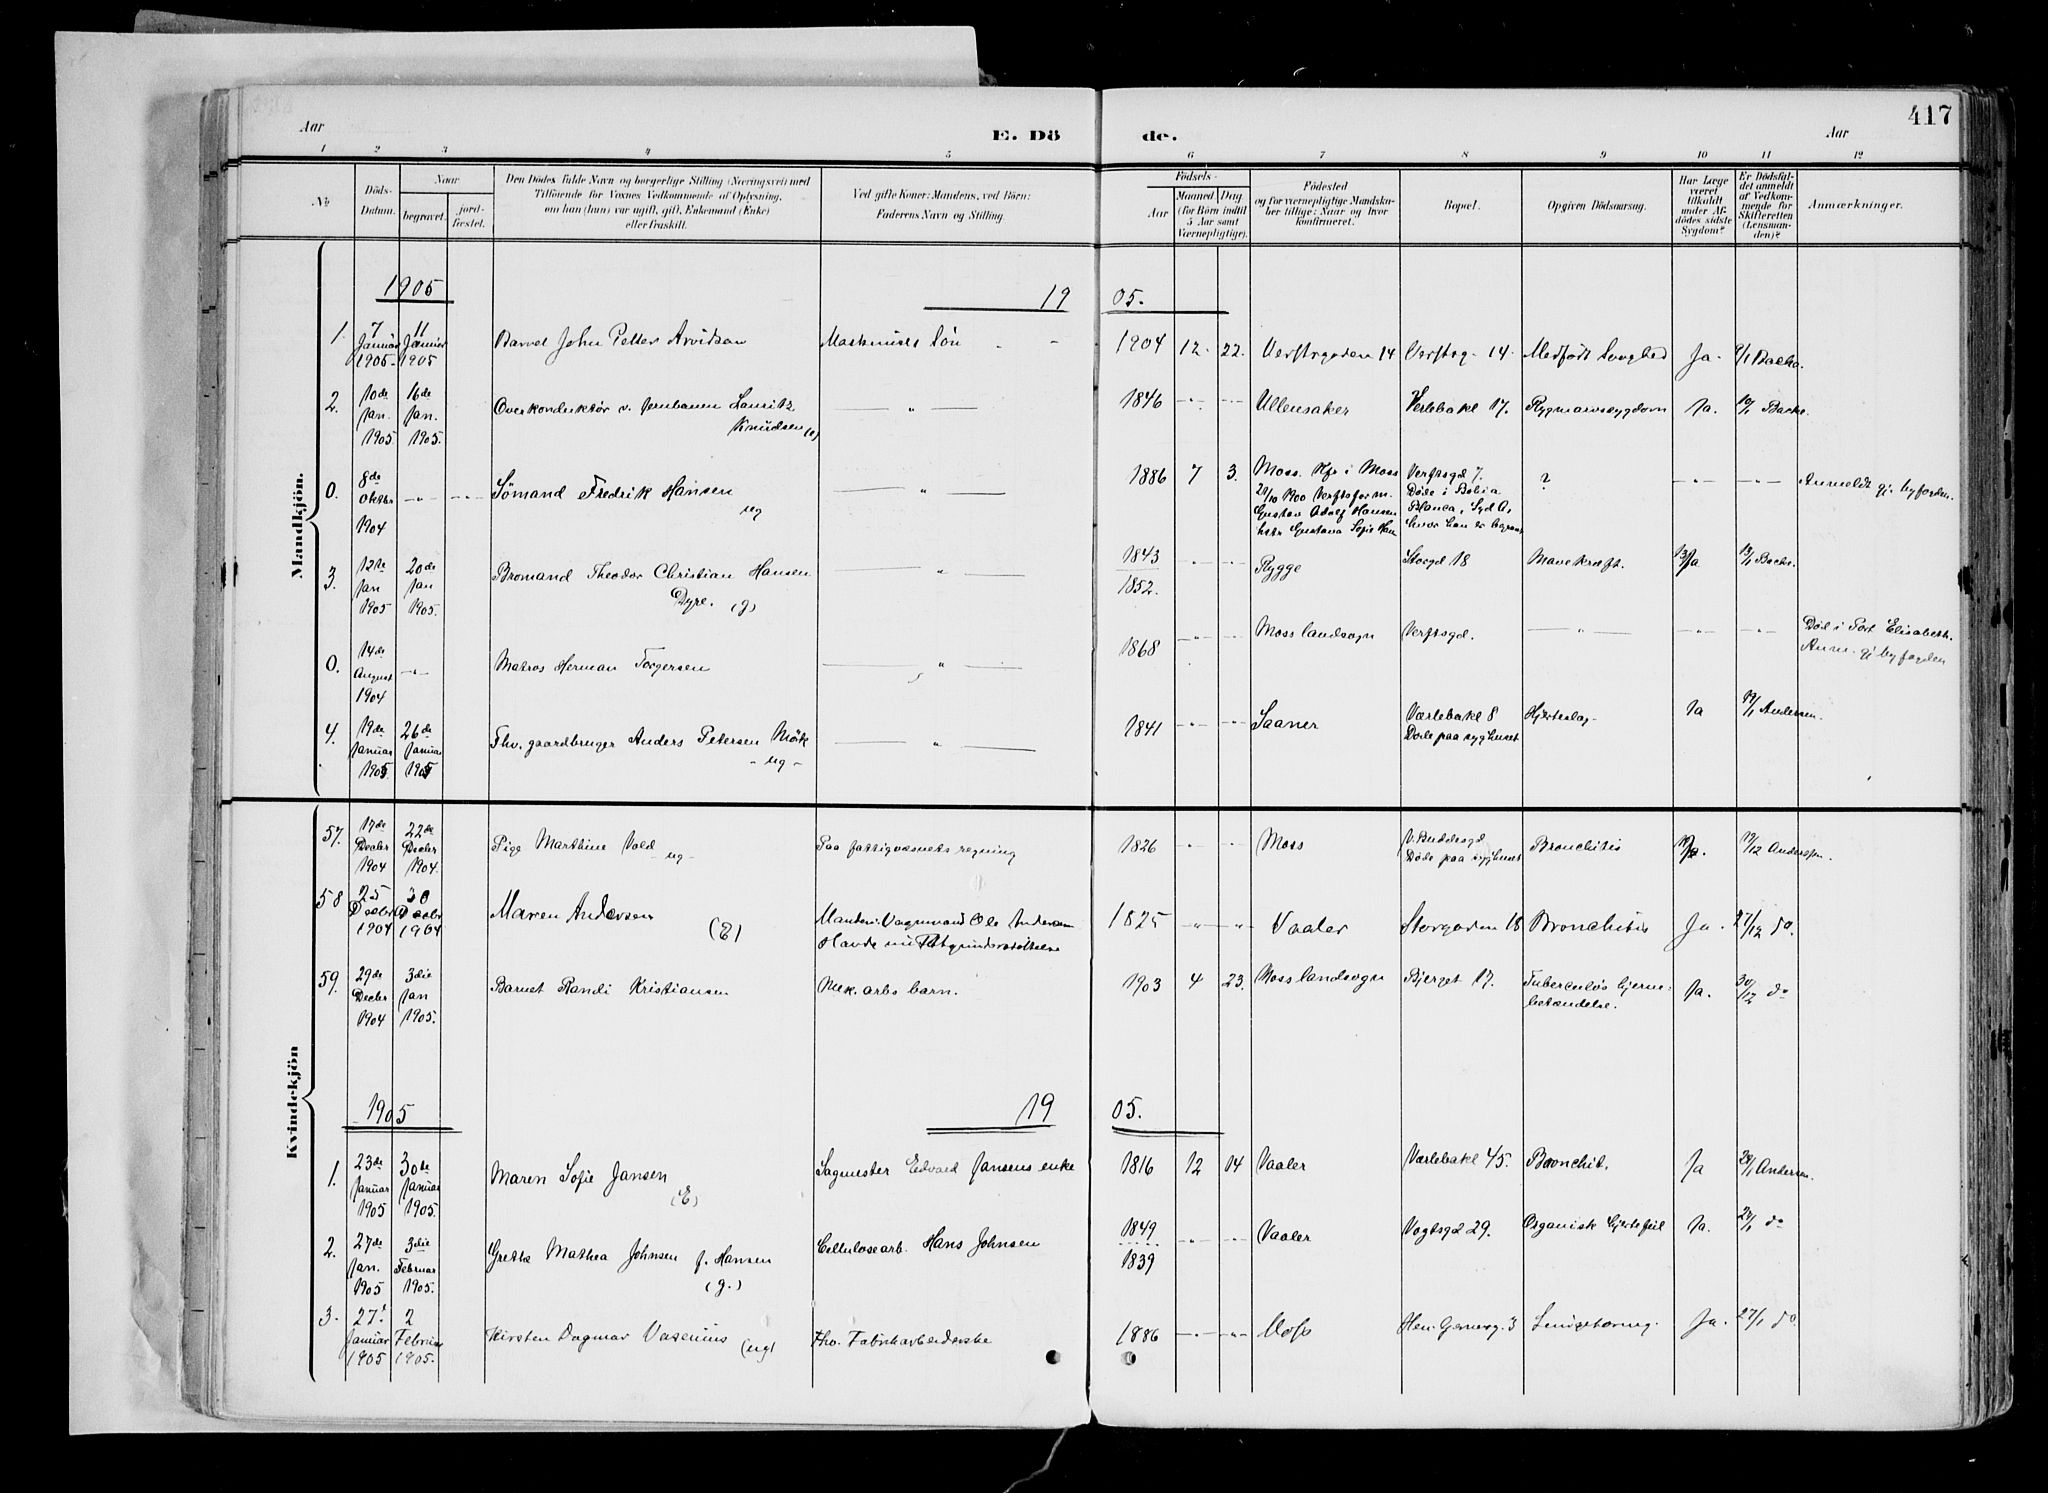 417
Aar
E. Dö
de.
Aar
1 2 3 4 5 6 7 8 9 10 11 12
No
Döds-
Datum.
Naar
begravet.
jord-
fæstet.
Den Dödes fulde Navn og borgerlige Stilling (Næringsvei) med
Tilföiende for Voxnes Vedkommende af Oplysning,
om han (hun) var ugift, gift, Enkemand (Enke)
eller fraskilt.
Ved gifte Koner: Mandens, ved Börn:
Faderens Navn og Stilling.
Födsels-
Aar
Maaned
Dag.
(for Börn indtil
5 Aar samt
Værnepligtige).
Födested
og for værnepligtige Mandskaber
tillige: Naar og hvor
konfirmeret.
Bopæl.
Opgiven Dödsaarsag.
Har Læge
været
tilkaldt
under Af-
dödes sidste
Sygdom?
Er Dödsfal-
det anmeldt
af Vedkom-
mende for
Skifteretten
(Lensman-
den)?
Anmærkninger.
Mandkjön.
1905
19 05.
1. 7 Januar 1905 11 Januar 1905 Barnet John Petter Arvidson Maskinists Søn 1904 12 22. Verftsgaden 14 Verftsg. 14 Medfødt Svaghed Ja. 9/1 Backe.
2. 10de Jan. 1905 16de Jan. 1905. Overkonduktør v. Jernbanen Lauritz Knudsen (e) — " — 1846 - " - Ullensaker Verlebakl 17. Rygmarvssygdom Ja. 10/1 Backe.
0. 8de Oktbr 1904 - " - - " - Sømand Fredrik Hansen ug — " — 1886 7 3. Moss. Kfr i Moss
29/10 1900 Verftsform.
Gustav Adolf Hansen
Verftsgd 7.
Døde i
Blanca, Syd A,
hvor han er
? - " - - " - Anmeldt gj. byfogden.
3. 12te Jan 1905 20de Jan 1905. Bromand Theodor Christian Hansen Dyre. (g) — " — 1843
1852. - " - Rygge Storgd 18 Mavekræft. 13/ Ja 13/1 Backe.
0. 14de August 1904 - " - Matros Herman Torgersen — " — 1868 - " - Moss landsogn Verftsgd. — " — - " - - " - Død i Port Elisabeth.
Anm. gj byfogden
4. 19de Januar 1905. 26de Januar 1905 Fhv. gaardbruger Anders Petersen Mörk - ug - — " — 1841 - " - Saaner Værlebakl 8
Døde paa syghuset Hjerteslag Ja 19/1 Andersen.
Kvindekjön
57. 17de Decbr 1904 22de Decbr 1904. Pige Marthine Vold - ug - Paa fattigvæsnets regning 1826 - " - Moss V. Buddesgd
Døde paa syghuset Bronchitis Ja. 19/12 Andersen.
58 25 Decbr 1904 30 Decbr 1904 Maren Andersen (E) Manden: Vognmand Ole Andersen
Havde
1825 - " - Vaaler Storgaden 18 Bronchitis Ja. 27/12 do.
59. 29de Decbr 1904 3die Jan 1905. Barnet Randi Kristiansen Mek. arbs barn. 1903 4 23. Moss landsogn Bjerget 17. Tuberculøs hjerne-
betændelse. Ja. 30/12 do
1905
19 05.
1. 23de Januar 1905 30de Januar 1905. Maren Sofie Jansen (E) Sagmester Edvard Jansens enke 1816 12 14 Vaaler Værlebakl 45. Bronchit. Ja 24/1 Andersen.
2. 27de Jan. 1905 3die Februar 1905. Grethe Mathea Johnsen f. Hansen (g.) Cellulosearb. Hans Johnsen 1849
1839 - " - Vaaler Vogtsgd 29. Organisk hjertefeil Ja. 27/1 do
3. 27. Januar 1905 2 Februar 1905. Kirsten Dagmar Vasenius (ug) Fhv. Fabrikarbeiderske 1886 - " - Moss Hen. Gernersg. 3 Ja. 27/1 do.